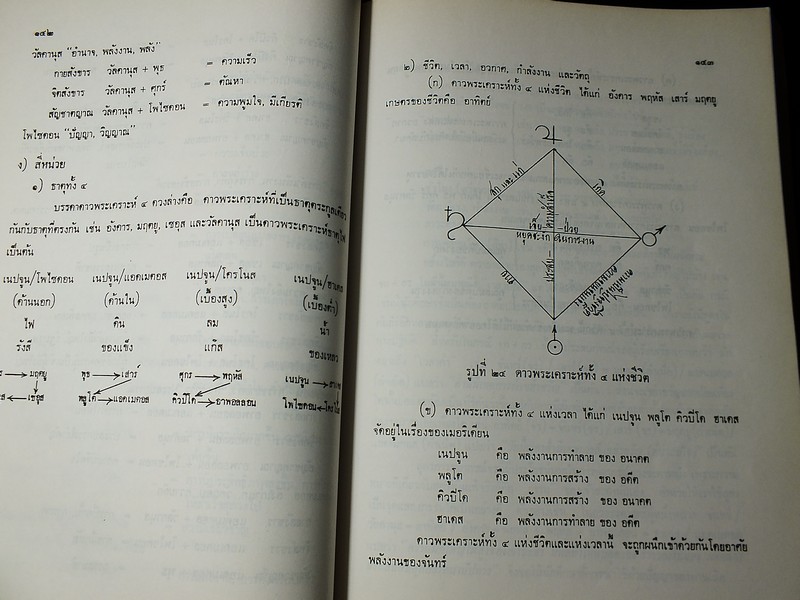 ๑๔๒
วัลคานุส "อำนาจ, พลังงาน, พลัง"
กายสังขาร วัลคานุส + พุธ = ความเร็ว
จิตสังขาร วัลคานุส + ศุกร์ = ตัณหา
สัญชาตญาณ วัลคานุส + โพไซดอน = ความพูมใจ, มีเกียรติ
โพไซดอน "ปัญญา, วิญญาณ"
ง) สี่หน่วย
๑) ธาตุทั้ง ๔
บรรดาดาวพระเคราะห์ ๔ ดวงล่างคือ ดาวพระเคราะห์ที่เป็นธาตุตระกูลเดียว
กันกับธาตุที่ตรงกัน เช่น อังคาร, มฤตยู, เซอุส และวัลคานุส เป็นดาวพระเคราะห์ธาตุไฟ
เป็นต้น
เนปจูน/โพไซดอน เนปจูน/แอดเมตอส เนปจูน/โครโนส เนปจูน/ฮาเดส
(ด้านนอก) (ด้านใน) (เบื้องสูง) (เบื้องต่ำ)
ไฟ ดิน ลม น้ำ
รังสี ของแข็ง แก๊ส ของเหลว
มฤตยู พุธ เสาร์ ศุกร์ พฤหัส เนปจูน
เซอุส พลูโต แอดเมตอส คิวปิโด อาพอลลอน โพไซดอน
๑๔๓
๒) ชีวิต, เวลา, อวกาศ, กำลังงาน และวัตถุ
(ก) ดาวพระเคราะห์ทั้ง ๔ แห่งชีวิต ได้แก่ อังคาร พฤหัส เสาร์ มฤตยู
เกษตรของชีวิตคือ อาทิตย์
สุก และ แก่
โต
เจ็บ ป่วย
หยุดชะงัก ในการงาน
รูปที่ ๒๔ ดาวพระเคราะห์ทั้ง ๔ แห่งชีวิต
(ข) ดาวพระเคราะห์ทั้ง ๔ แห่งเวลา ได้แก่ เนปจูน พลูโต คิวปิโด ฮาเดส
จัดอยู่ในเรื่องของเมอริเดียน
เนปจูน คือ พลังงานการทำลาย ของ อนาคต
พลูโต คือ พลังงานการสร้าง ของ อดีต
คิวปิโด คือ พลังงานการสร้าง ของ อนาคต
ฮาเดส คือ พลังงานการทำลาย ของ อดีต
ดาวพระเคราะห์ทั้ง ๔ แห่งชีวิตและแห่งเวลานี้ จะถูกผนึกเข้าด้วยกันโดยอาศัย
พลังงานของจันทร์